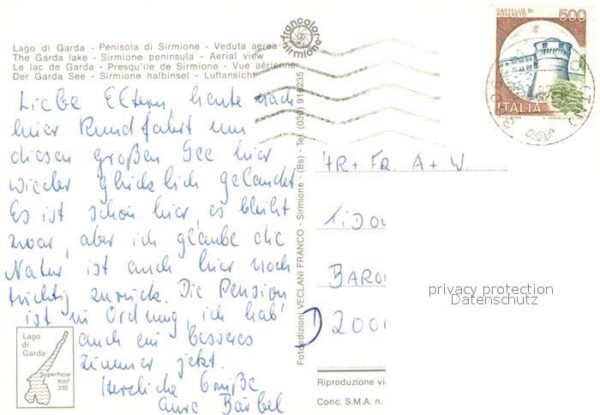 Lago di Garda - Penisola di Sirmione - Veduta aerea
The Garda lake - Sirmione peninsula - Aerial view
Le lac de Garda - Presqu'île de Sirmione - Vue aérienne
Der Garda See - Sirmione halbinsel - Luftansicht
francolor
sirmione
CASTELLO DI
ROVERETO
500
ITALIA
Liebe Eltern, heute nach
hier Rundfahrt um
diesen großen See hier
wieder glücklich gelandet
Es ist schön hier, es blüht
zwar, aber ich glaube die
Natur ist auch hier noch
tüchtig zurück. Die Pension
ist in Ordnung, ich hab'
auch ein besseres
Zimmer jetzt.
Herzliche Grüße
Eure Bärbel
Lago
di
Garda
Superficie
Km²
370
Fotoedizioni VECLANI FRANCO - Sirmione - (Bs) - Tel. (030) 916235
HR + FR A + W.
BARO
D 2000
privacy protection
Datenschutz
Riproduzione vi
Conc. S.M.A. n.